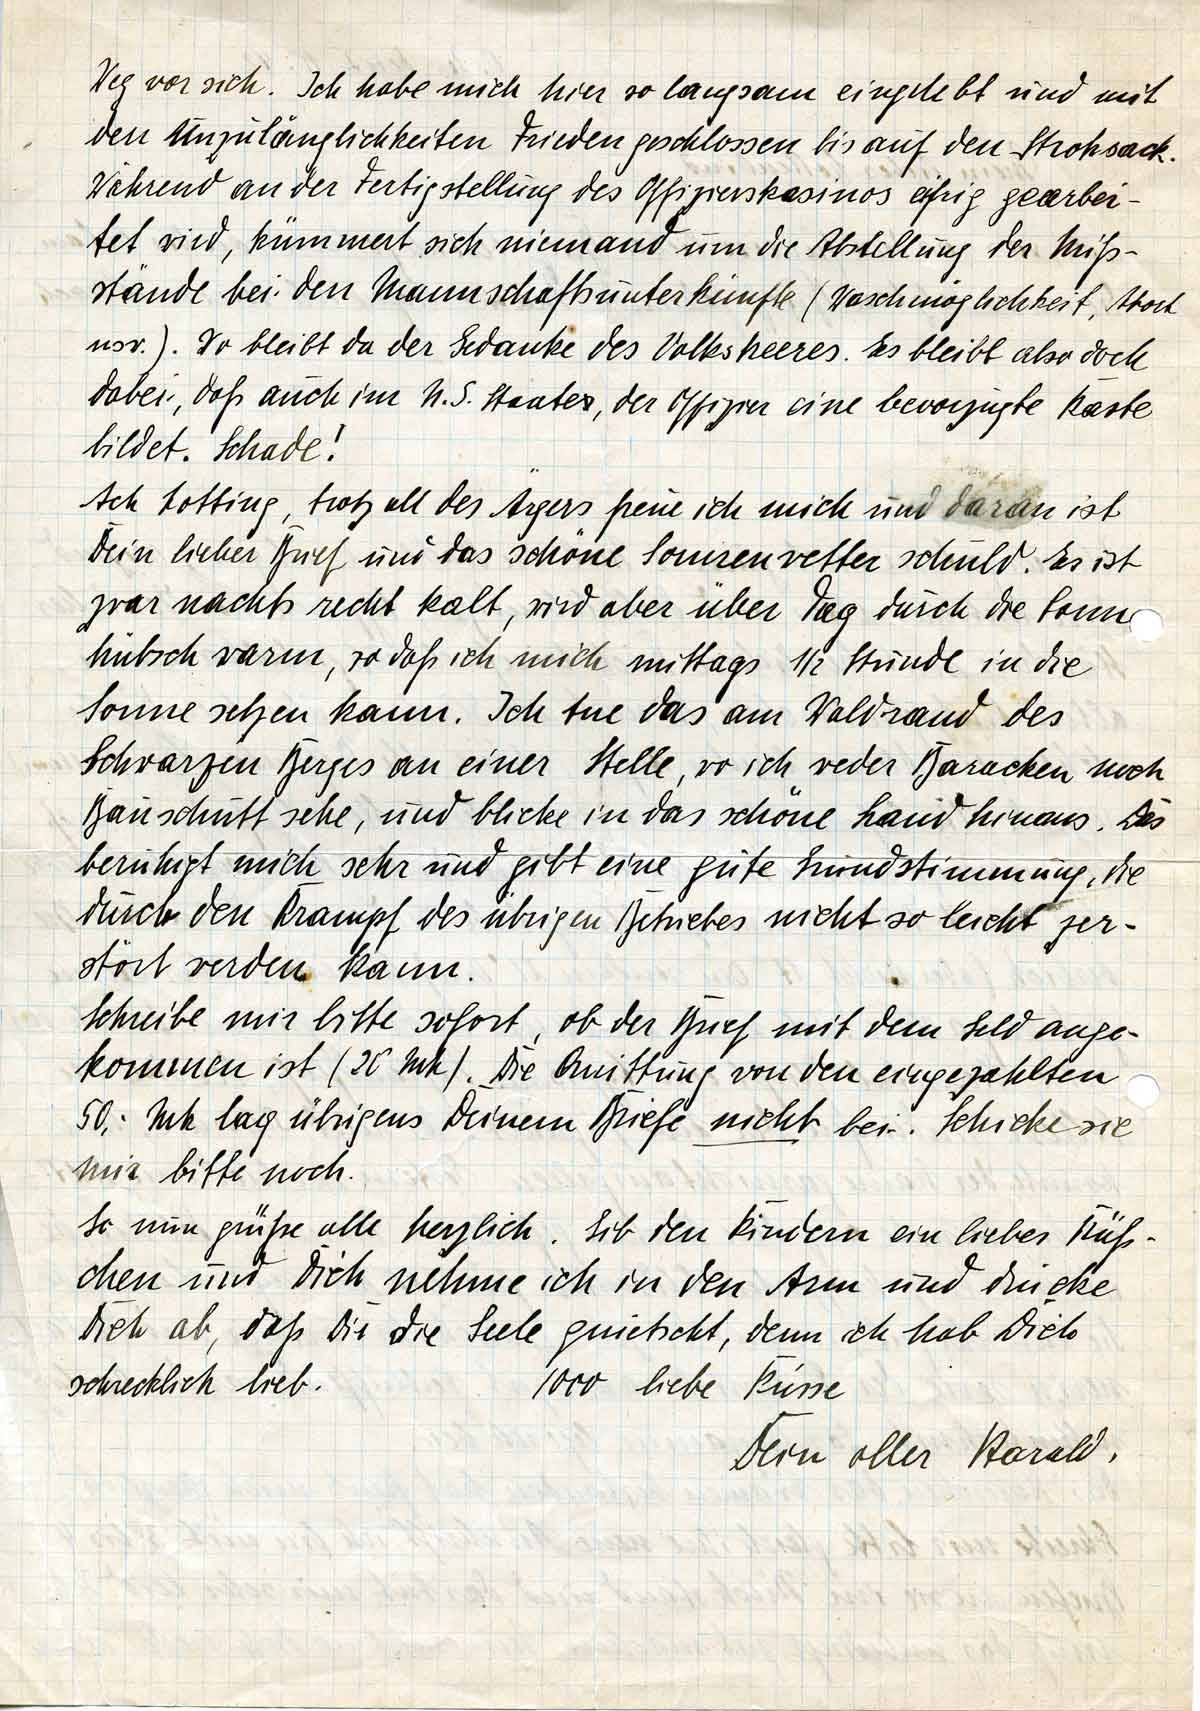 Weg vor sich. Ich habe mich hier so langsam eingelebt und mit
den Unzulänglichkeiten Frieden geschlossen bis auf den Strohsack.
Während an der Fertigstellung des Offizierskasinos eifrig gearbei-
tet wird, kümmert sich niemand um die Abstellung der Miß-
stände bei den Mannschaftsunterkünfte (Waschmöglichkeit, Abort
usw.). Wo bleibt da der Gedanke des Volksheeres. Es bleibt also doch
dabei, daß auch im N.S. Staate, der Offizier eine bevorzugte Kaste
bildet. Schade!
Ach Lotting, trotz all des Ärgers freue ich mich und daran ist
Dein lieber Brief und das schöne Sonnenwetter schuld. Es ist
zwar nachts recht kalt, wird aber über Tag durch die Sonne
hübsch warm, so daß ich mich mittags 1/2 Stunde in die
Sonne setzen kann. Ich tue das am Waldrand des
Schwarzen Berges an einer Stelle, wo ich weder Baracken noch
Bauschutt sehe, und blicke in das schöne Land hinaus. Das
beruhigt mich sehr und gibt eine gute Grundstimmung, die
durch den Krampf des übrigen Betriebes nicht so leicht zer-
stört werden kann.
Schreibe mir bitte sofort, ob der Brief mit dem Geld ange-
kommen ist (20 Mk). Die Quittung von den eingezahlten
50,- Mk lag übrigens Deinem Briefe nicht bei. Schicke sie
mir bitte noch.
So nun grüße alle herzlich. Gib den Kindern ein liebes Küß-
chen und Dich nehme ich in den Arm und drücke
Dich ab, daß Dir die Seele quietscht, denn ich hab Dich
schrecklich lieb. 1000 liebe Küsse
Dein oller Harald.